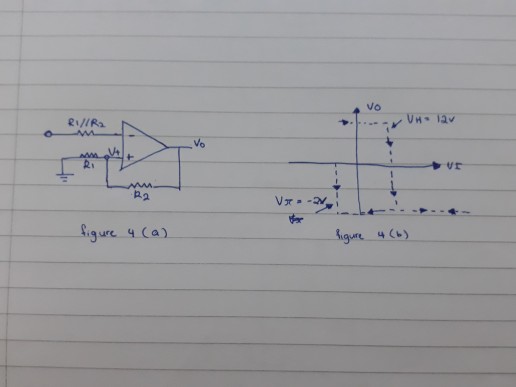 R1//R2
V+
VO
R1
R2
figure 4 (a)
VO
VH = 12V
VI
figure 4 (b)